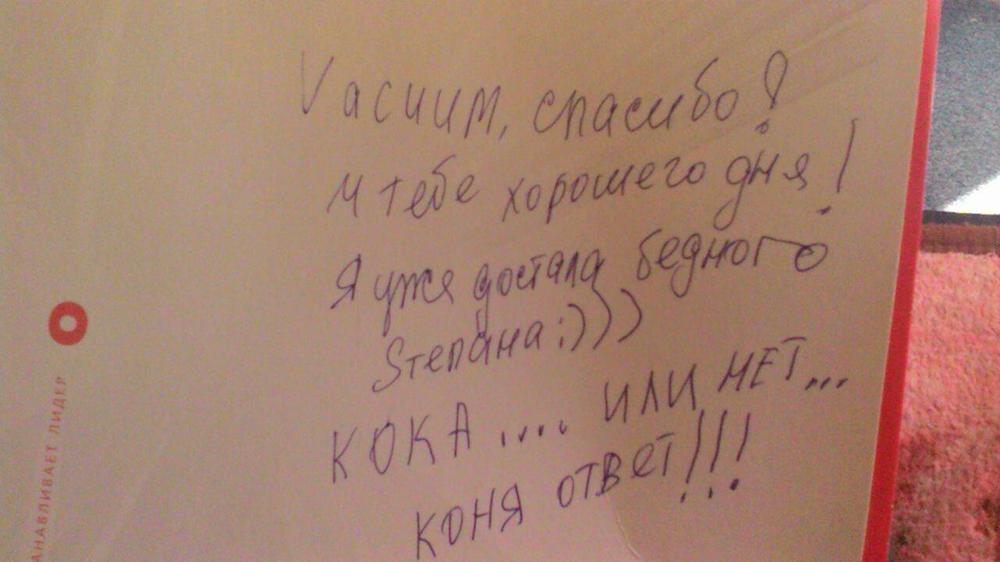 Vасиим, спасибо!
И тебе хорошего дня!
Я уже достала бедного
Sтепана :)))
КОКА .... ИЛИ НЕТ...
КОНЯ ОТВЕТ!!!
АНАВЛИВАЕТ ЛИДЕР